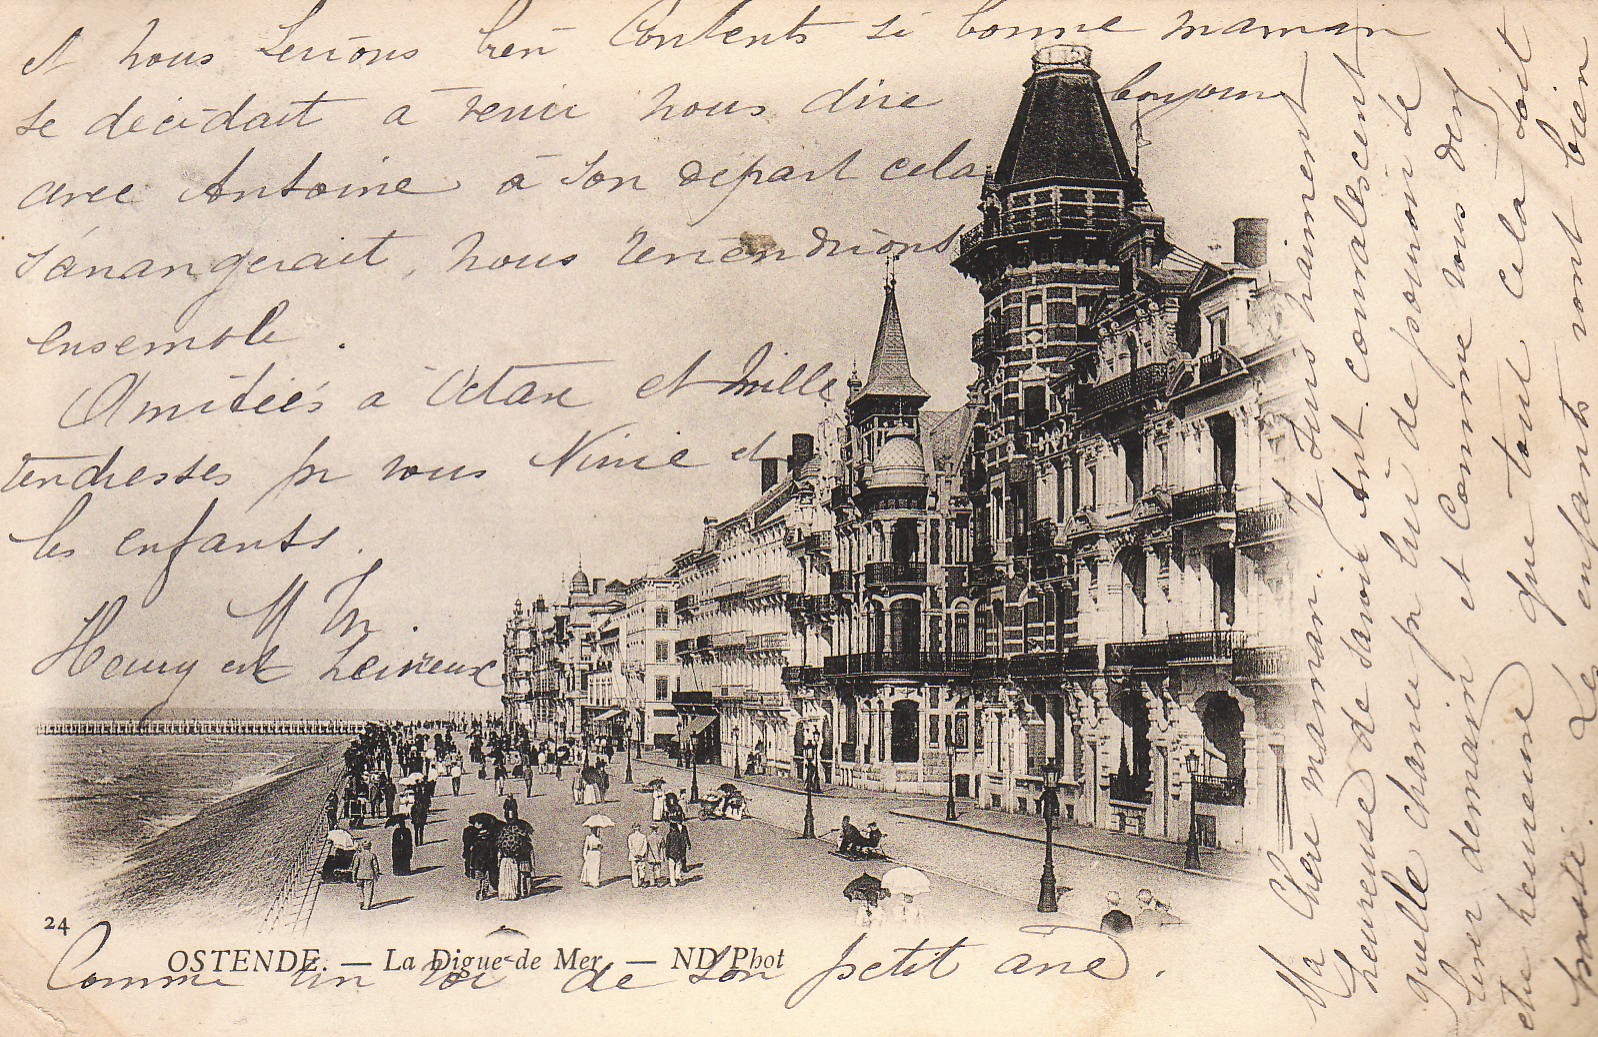 Ma Chère maman. Je suis vraiment
heureuse de savoir Ant. convalescent
quelle chance pr lui de pouvoir se
lever demain et comme vous devez
être heureuse que tout cela soit
passé. Les enfants vont bien
et nous serions bien contents si bonne maman
se décidait à venir nous dire bonjour
avec Antoine à son départ cela
s'arrangerait, nous reviendrions
ensemble.
Amitiés à Octave et mille
tendresses pr vous Ninie et
les enfants.
M Th.
Heury et
24
OSTENDE. — La Digue de Mer. — ND Phot
Comme un roi de son petit âne.